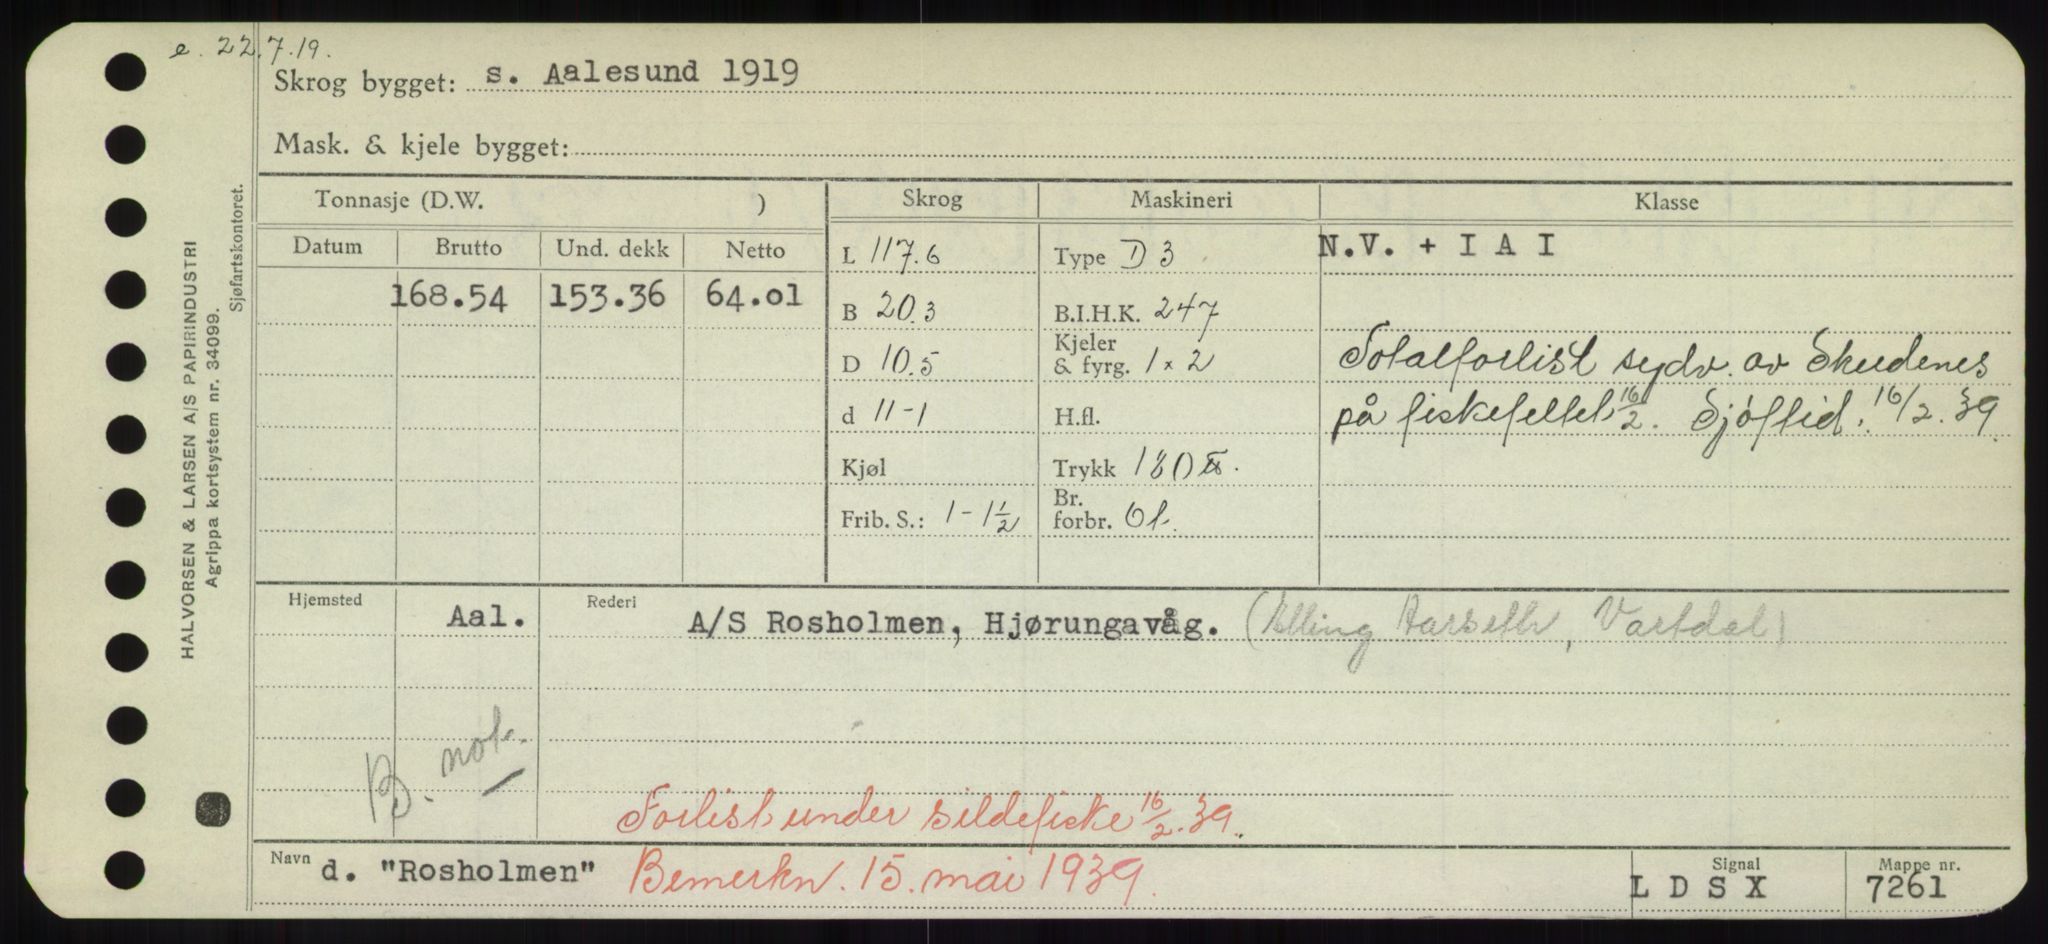 e. 22.7.19.
Skrog bygget: s. Aalesund 1919
Mask. & kjele bygget:
HALVORSEN & LARSEN A/S PAPIRINDUSTRI
Agrippa kortsystem nr. 34099.
Sjøfartskontoret.
Tonnasje (D.W. ) Skrog Maskineri Klasse
Datum Brutto Und. dekk Netto
168.54 153.36 64.01
L 117.6
B 20.3
D 10.5
d 11-1
Kjøl
Frib. S.: 1-1½
Type D 3
B.I.H.K. 247
Kjeler
& fyrg. 1 x 2
H.fl.
Trykk 180 ℔.
Br.
forbr. Ol.
N.V. + I A I
Totalforlist sydv. av Skudenes
på fiskefeltet 16/2. Sjöftid. 16/2. 39.
Hjemsted Aal. Rederi A/S Rosholmen, Hjørungavåg. (Elling Aarseth, Vartdal)
B. not.
Forlist under sildefiske 16/2. 39.
Navn d. "Rosholmen" Bemerkn. 15. mai 1939.
Signal L D S X
Mappe nr. 7261